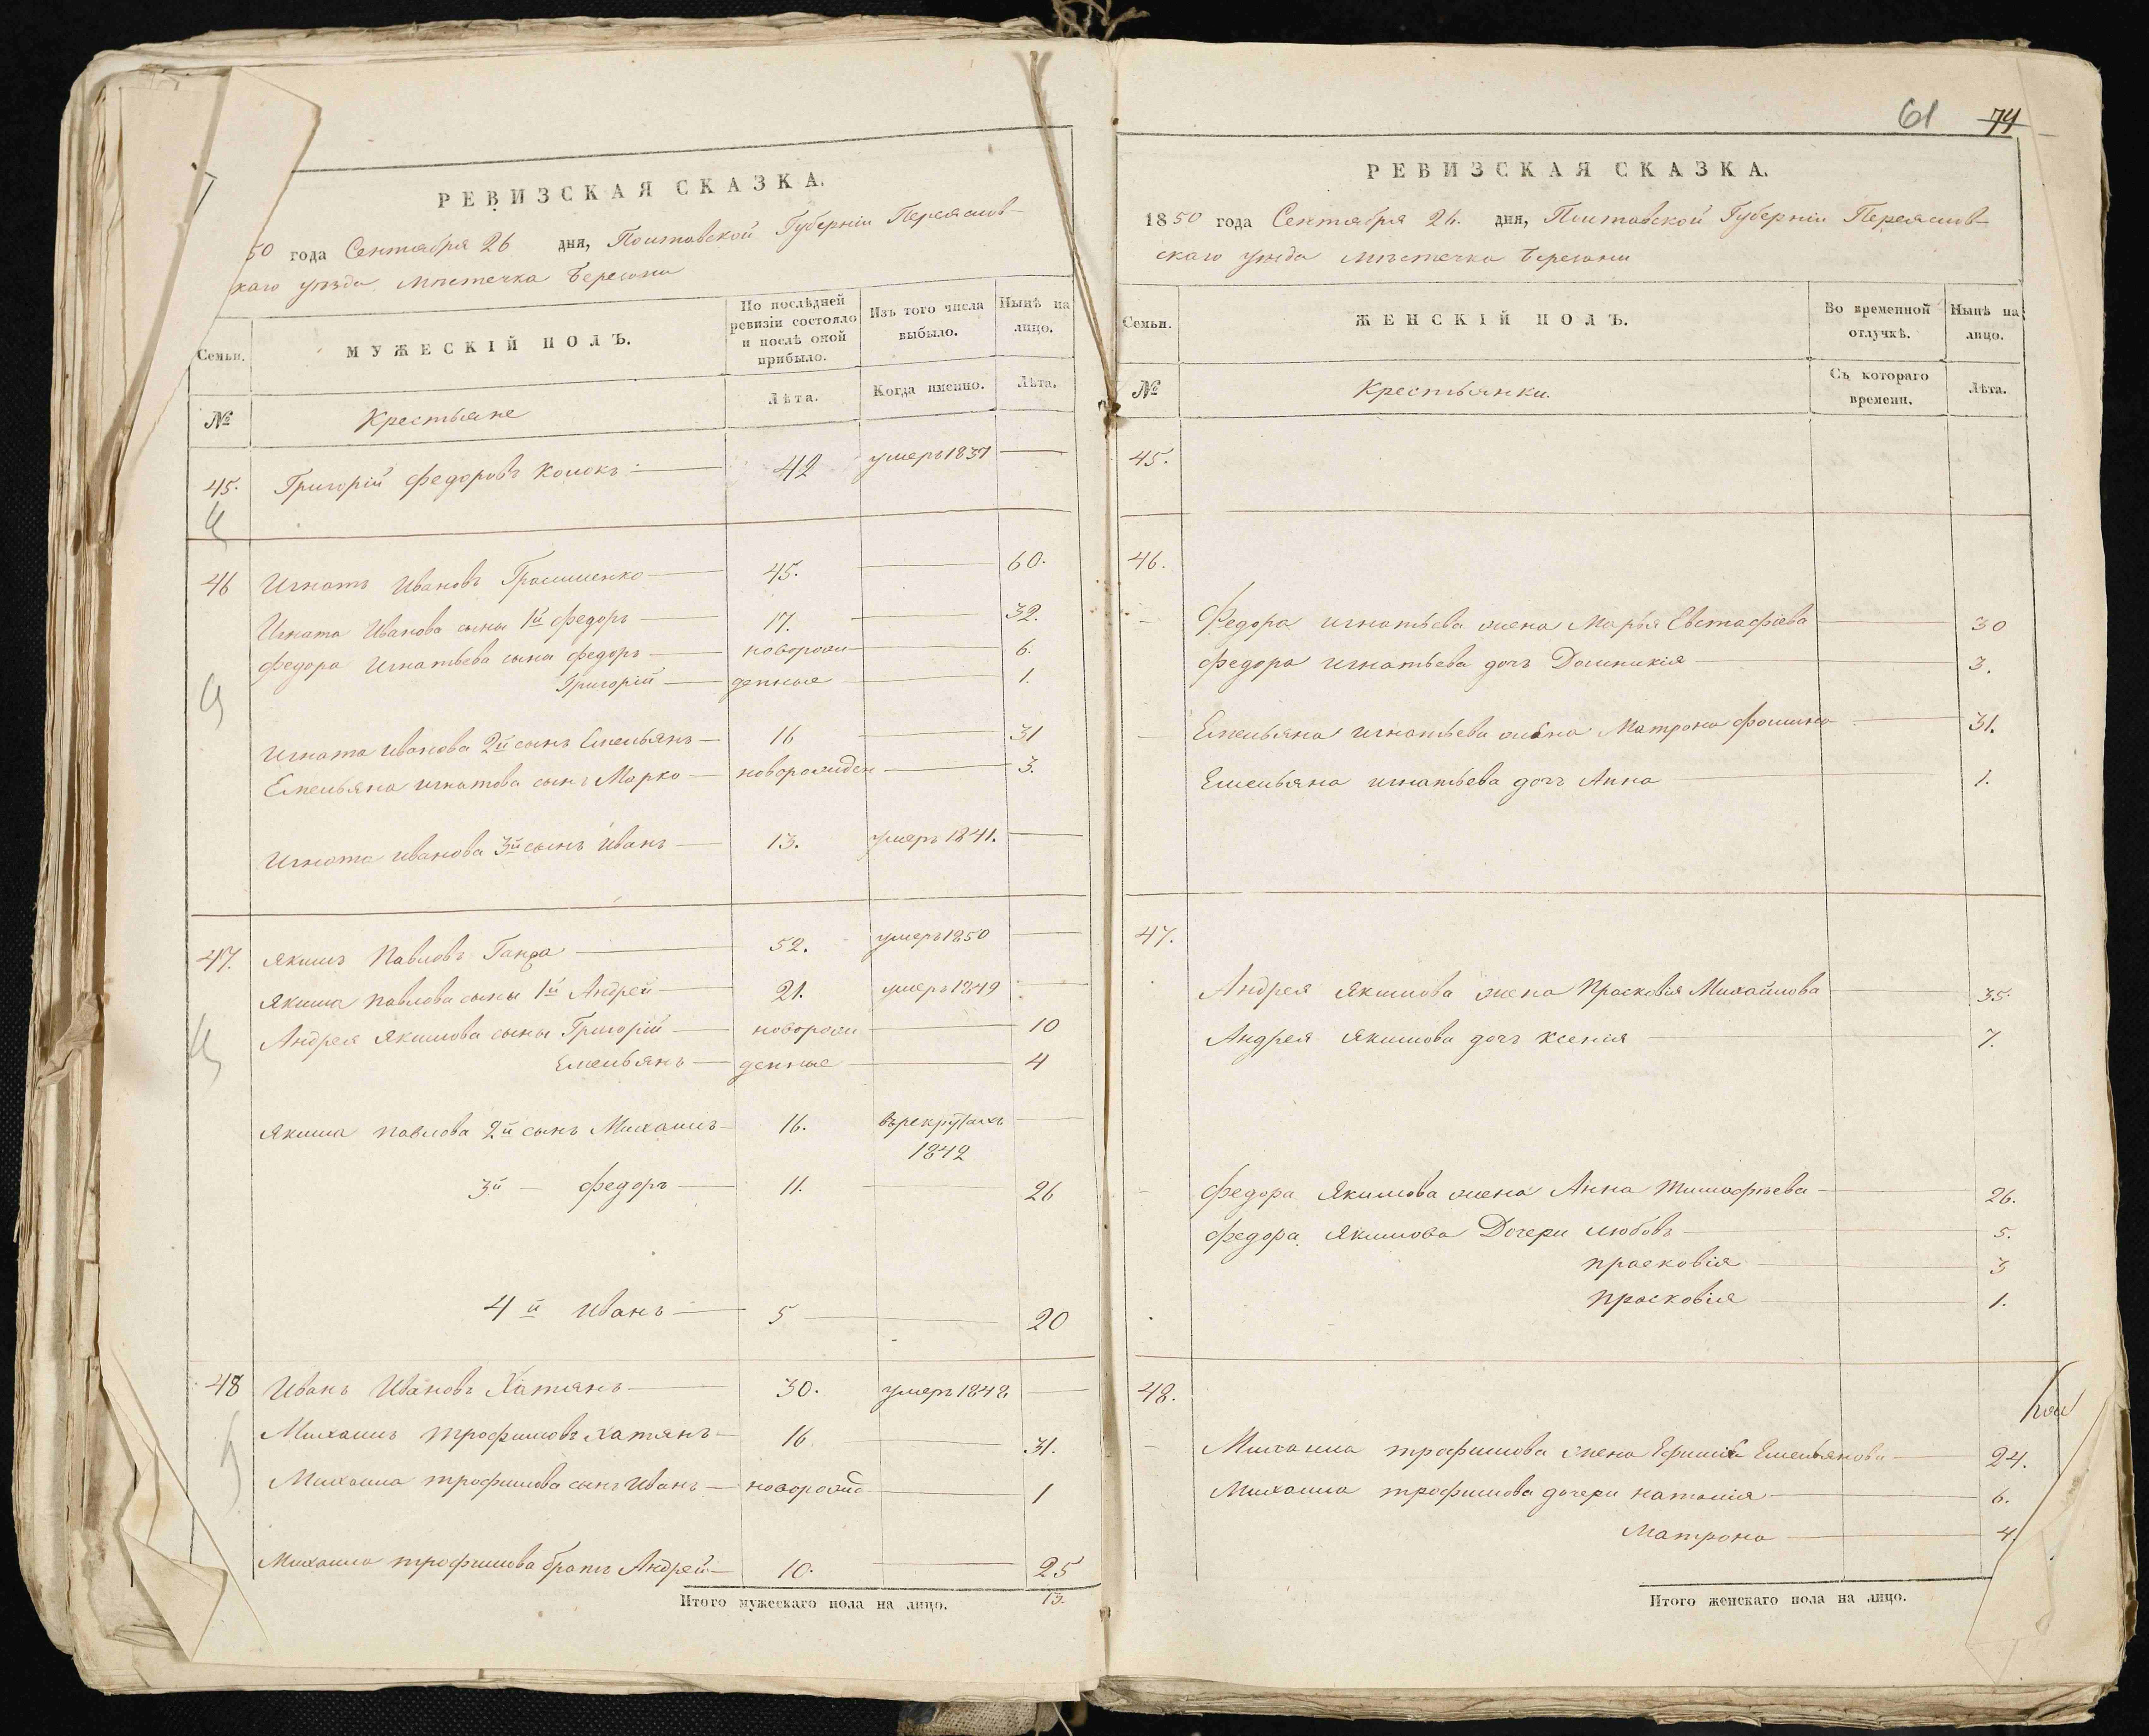 РЕВИЗСКАЯ СКАЗКА.
50 года Сентября 26 дня, Полтавской Губерніи Переяслов-
скаго уѣзда мѣстечка Березани
Семьи.
МУЖЕСКІЙ ПОЛЪ.
По послѣдней ревизіи состояло и послѣ оной прибыло.
Изъ того числа выбыло.
Нынѣ на лицо.
№
Крестьяне
Лѣта.
Когда именно.
Лѣта.
45. Григорій Федоровъ Колокъ 42 умеръ 1837
46 Игнатъ Ивановъ 45. 60.
Игната Иванова сыны 1й Федоръ 17. 32.
Федора Игнатьева сыны Федоръ новорож 6.
Григорій денные 1.
Игната Иванова 2й сынъ Емельянъ 16 31
Емельяна Игнатова сынъ Марко новорожден 3.
Игната Иванова 3й сынъ Иванъ 13. умеръ 1841.
47. Якимъ Павловъ Ганжа 52. умеръ 1850
Якима Павлова сыны 1й Андрей 21. умеръ 1849
Андрея Якимова сыны Григорій новорож 10
Емельянъ денные 4
Якима Павлова 2й сынъ Михаилъ 16. въ рекрутахъ
1842
3й — Федоръ 11. 26
4й Иванъ 5 20
48 Иванъ Ивановъ Хатянъ 30. умеръ 1848
Михаилъ Трофимовъ Хатянъ 16. 31.
Михаила Трофимова сынъ Иванъ новорожд 1
Михаила Трофимова братъ Андрей 10. 25
Итого мужескаго пола на лицо. 13.
61 74
РЕВИЗСКАЯ СКАЗКА.
1850 года Сентября 26. дня, Полтавской Губерніи Переяслов-
скаго уѣзда мѣстечка Березани
Семьи.
ЖЕНСКІЙ ПОЛЪ.
Во временной отлучкѣ.
Нынѣ на лицо.
№
Крестьянки.
Съ котораго времени.
Лѣта.
45.
46.
Федора Игнатьева жена Марья Евстафіева 30
Федора Игнатьева дочь Домникія 3.
Емельяна Игнатьева жена Матрона Фомина 31.
Емельяна Игнатьева дочь Анна 1.
47.
Андрея Якимова жена Прасковія Михайлова 35.
Андрея Якимова дочь Ксенія 7.
Федора Якимова жена Анна Тимофѣева 26.
Федора Якимова Дочери Любовь 5.
Прасковія 3
Прасковія 1.
48.
Михаила Трофимова жена Ефимія Емельянова 24.
Михаила Трофимова дочери Наталія 6.
Матрона 4.
Итого женскаго пола на лицо.